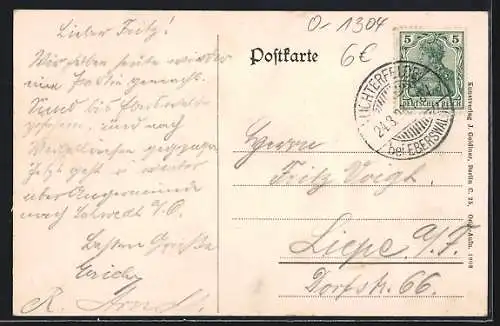 Lieber Fritz!
Wir haben heute wieder
eine Partie gemacht.
Sind bis Eberswalde
gefahren, und nach
gegangen
Jetzt geht es weiter
über Angermünde
nach Schwedt a/O.
Besten Grüße
Erich
R.
O-1304
6€
Postkarte
5 5
DEUTSCHES REICH
LICHTERFELDE
24.3
bei EBERSWALDE
Herrn
Fritz Voigt
Liepe a/F.
Dorfstr. 66.
Kunstverlag J. Goldiner, Berlin C. 25, Orig.-Aufn. 1908